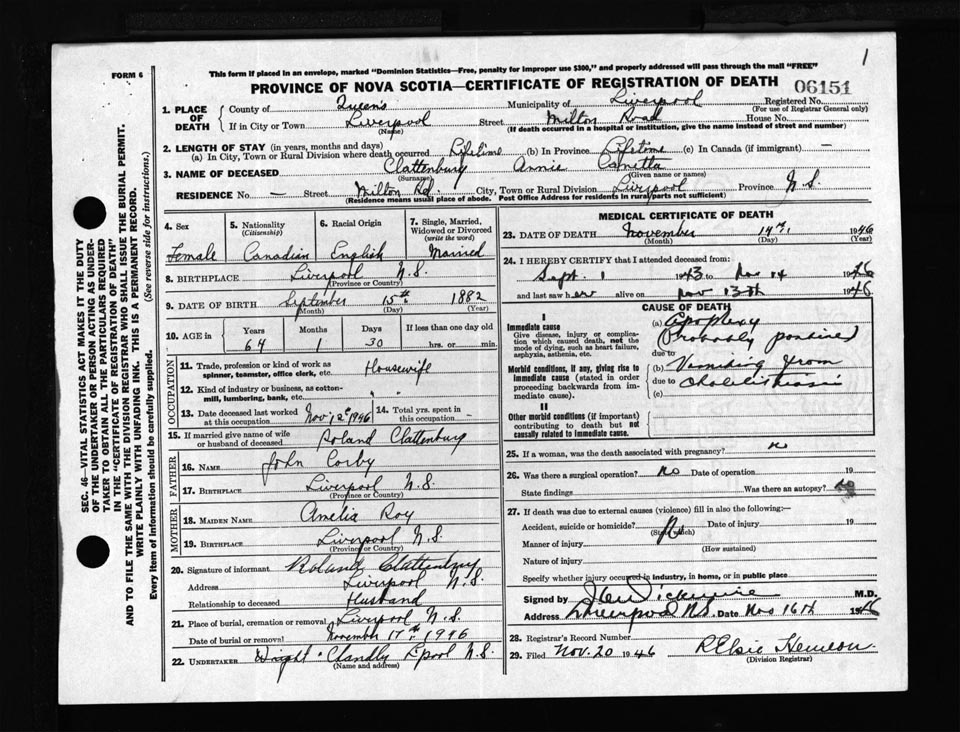 1
This form if placed in an envelope, marked "Dominion Statistics—Free, penalty for improper use $300," and properly addressed will pass through the mail "FREE"
FORM 6
PROVINCE OF NOVA SCOTIA—CERTIFICATE OF REGISTRATION OF DEATH
06151
1. PLACE OF DEATH
County of Queens Municipality of Liverpool Registered No.
(For use of Registrar General only)
If in City or Town Liverpool Street Milton Road House No.
(Name) (If death occurred in a hospital or institution, give the name instead of street and number)
2. LENGTH OF STAY (in years, months and days)
(a) In City, Town or Rural Division where death occurred Lifetime (b) In Province Lifetime (c) In Canada (if immigrant) —
3. NAME OF DECEASED Clattenburg Annie
(Surname) (Given name or names)
RESIDENCE No. — Street Milton Rd. City, Town or Rural Division Liverpool Province N.S.
(Residence means usual place of abode. Post Office Address for residents in rural parts not sufficient)
4. Sex
5. Nationality (Citizenship)
6. Racial Origin
7. Single, Married, Widowed or Divorced (write the word)
Female Canadian English Married
8. BIRTHPLACE Liverpool N.S.
(Province or Country)
9. DATE OF BIRTH September 15th 1882
(Month) (Day) (Year)
10. AGE in Years Months Days If less than one day old
64 1 30 hrs. or min.
OCCUPATION
11. Trade, profession or kind of work as spinner, teamster, office clerk, etc. Housewife
12. Kind of industry or business, as cotton-mill, lumbering, bank, etc. " "
13. Date deceased last worked at this occupation Nov 12th 1946
14. Total yrs. spent in this occupation —
15. If married give name of wife or husband of deceased Roland Clattenburg
FATHER
16. NAME John Corby
17. BIRTHPLACE Liverpool N.S.
(Province or Country)
MOTHER
18. MAIDEN NAME Amelia Roy
19. BIRTHPLACE Liverpool N.S.
(Province or Country)
20. Signature of informant Roland Clattenburg
Address Liverpool N.S.
Relationship to deceased Husband
21. Place of burial, cremation or removal Liverpool N.S.
Date of burial or removal November 17th 1946
22. UNDERTAKER Wright Chandly L'pool N.S.
(Name and address)
MEDICAL CERTIFICATE OF DEATH
23. DATE OF DEATH November 14th, 1946
(Month) (Day) (Year)
24. I HEREBY CERTIFY that I attended deceased from:
Sept. 1 1943 to Nov 14 1946
and last saw her alive on Nov 13th 1946
CAUSE OF DEATH
I
Immediate cause
Give disease, injury or complication which caused death, not the mode of dying, such as heart failure, asphyxia, asthenia, etc.
(a) Apoplexy
Probably
due to
Morbid conditions, if any, giving rise to immediate cause (stated in order proceeding backwards from immediate cause).
(b) Vomiting from
due to
(c)
II
Other morbid conditions (if important) contributing to death but not causally related to immediate cause.
25. If a woman, was the death associated with pregnancy? no
26. Was there a surgical operation? no Date of operation 19
State findings Was there an autopsy? no
27. If death was due to external causes (violence) fill in also the following:—
Accident, suicide or homicide? Date of injury 19
(State which)
Manner of injury
(How sustained)
Nature of injury
Specify whether injury occurred in industry, in home, or in public place
Signed by M.D.
Address Liverpool N.S. Date Nov 16th 1946
28. Registrar's Record Number
29. Filed Nov. 20 1946 R Elsie Hemeon
(Division Registrar)
SEC. 46—VITAL STATISTICS ACT MAKES IT THE DUTY
OF THE UNDERTAKER OR PERSON ACTING AS UNDER-
TAKER TO OBTAIN ALL THE PARTICULARS REQUIRED
IN THE "CERTIFICATE OF REGISTRATION OF DEATH"
AND TO FILE THE SAME WITH THE DIVISION REGISTRAR WHO SHALL ISSUE THE BURIAL PERMIT.
WRITE PLAINLY WITH UNFADING INK. THIS IS A PERMANENT RECORD.
Every item of information should be carefully supplied. (See reverse side for instructions.)